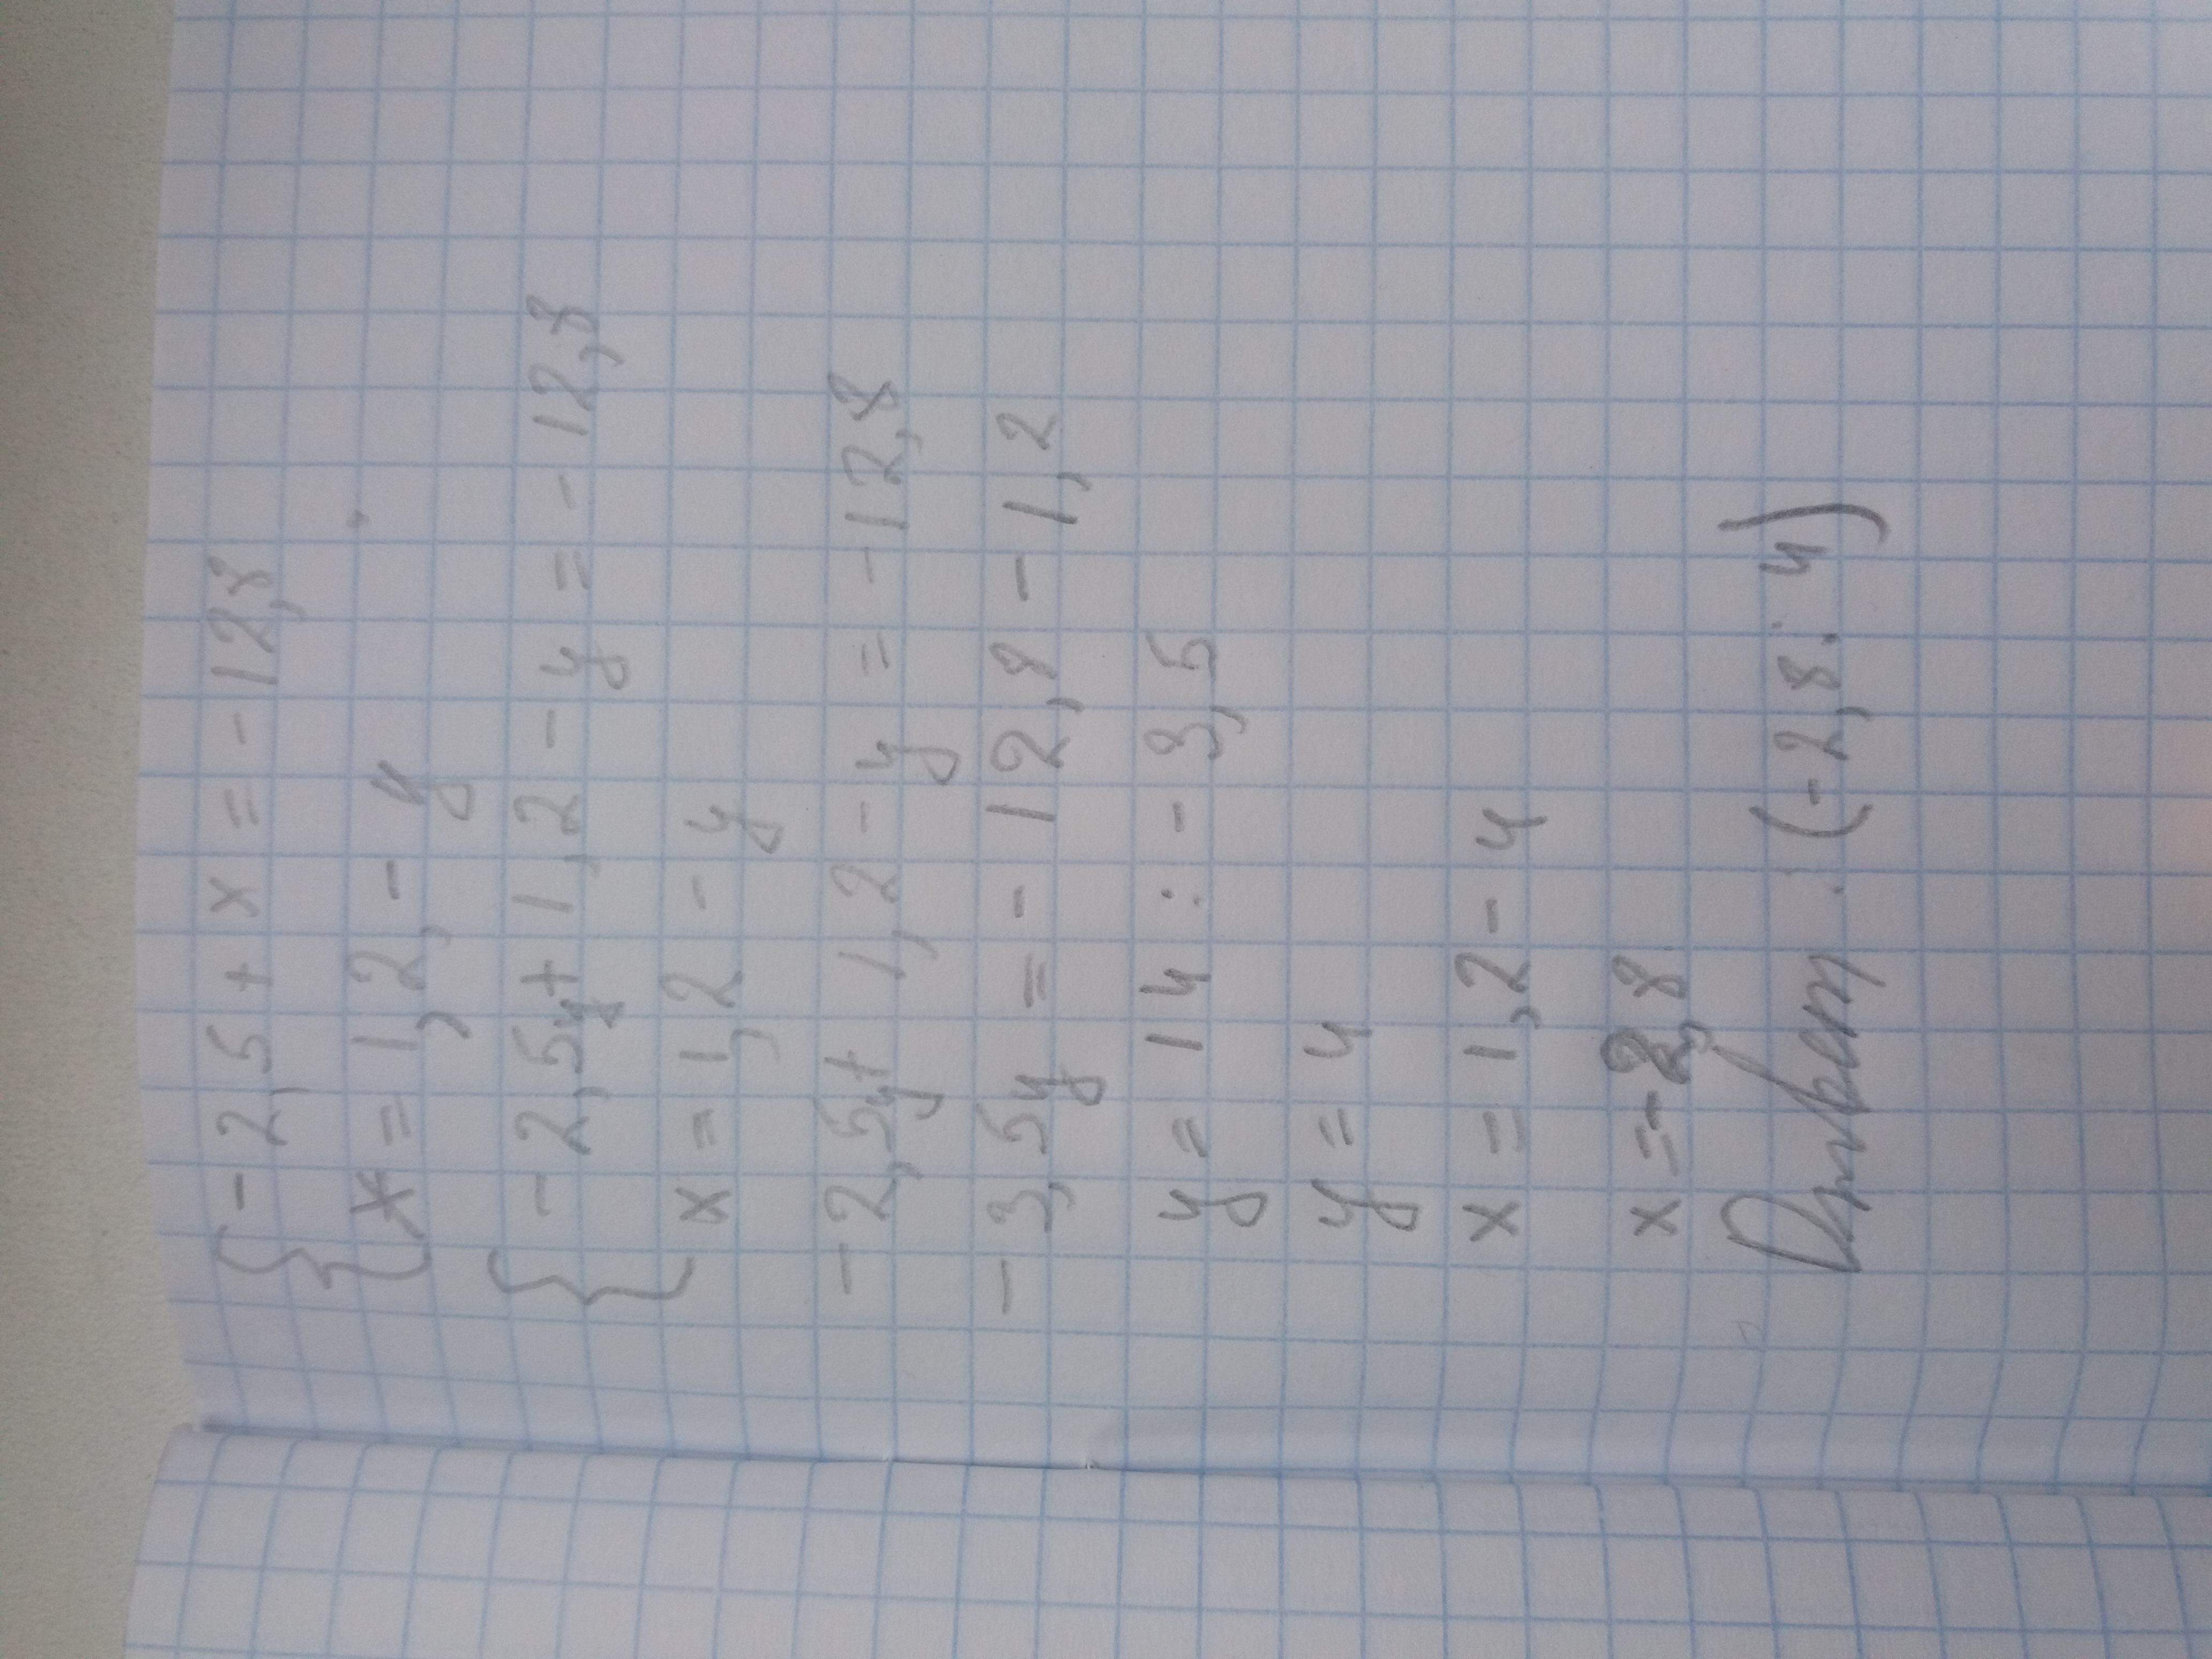 { - 2,5 + x = - 12,8
x = 1,2, - y
{ - 2,5y + 1,2 - y = - 12,8
x = 1,2 - y
- 2,5y + 1,2 - y = - 12,8
- 3,5y = - 12,8 - 1,2
y = 14 : - 3,5
y = 4
x = 1,2 - 4
x = - 2,8
Ответ : (- 2,8 ; 4)